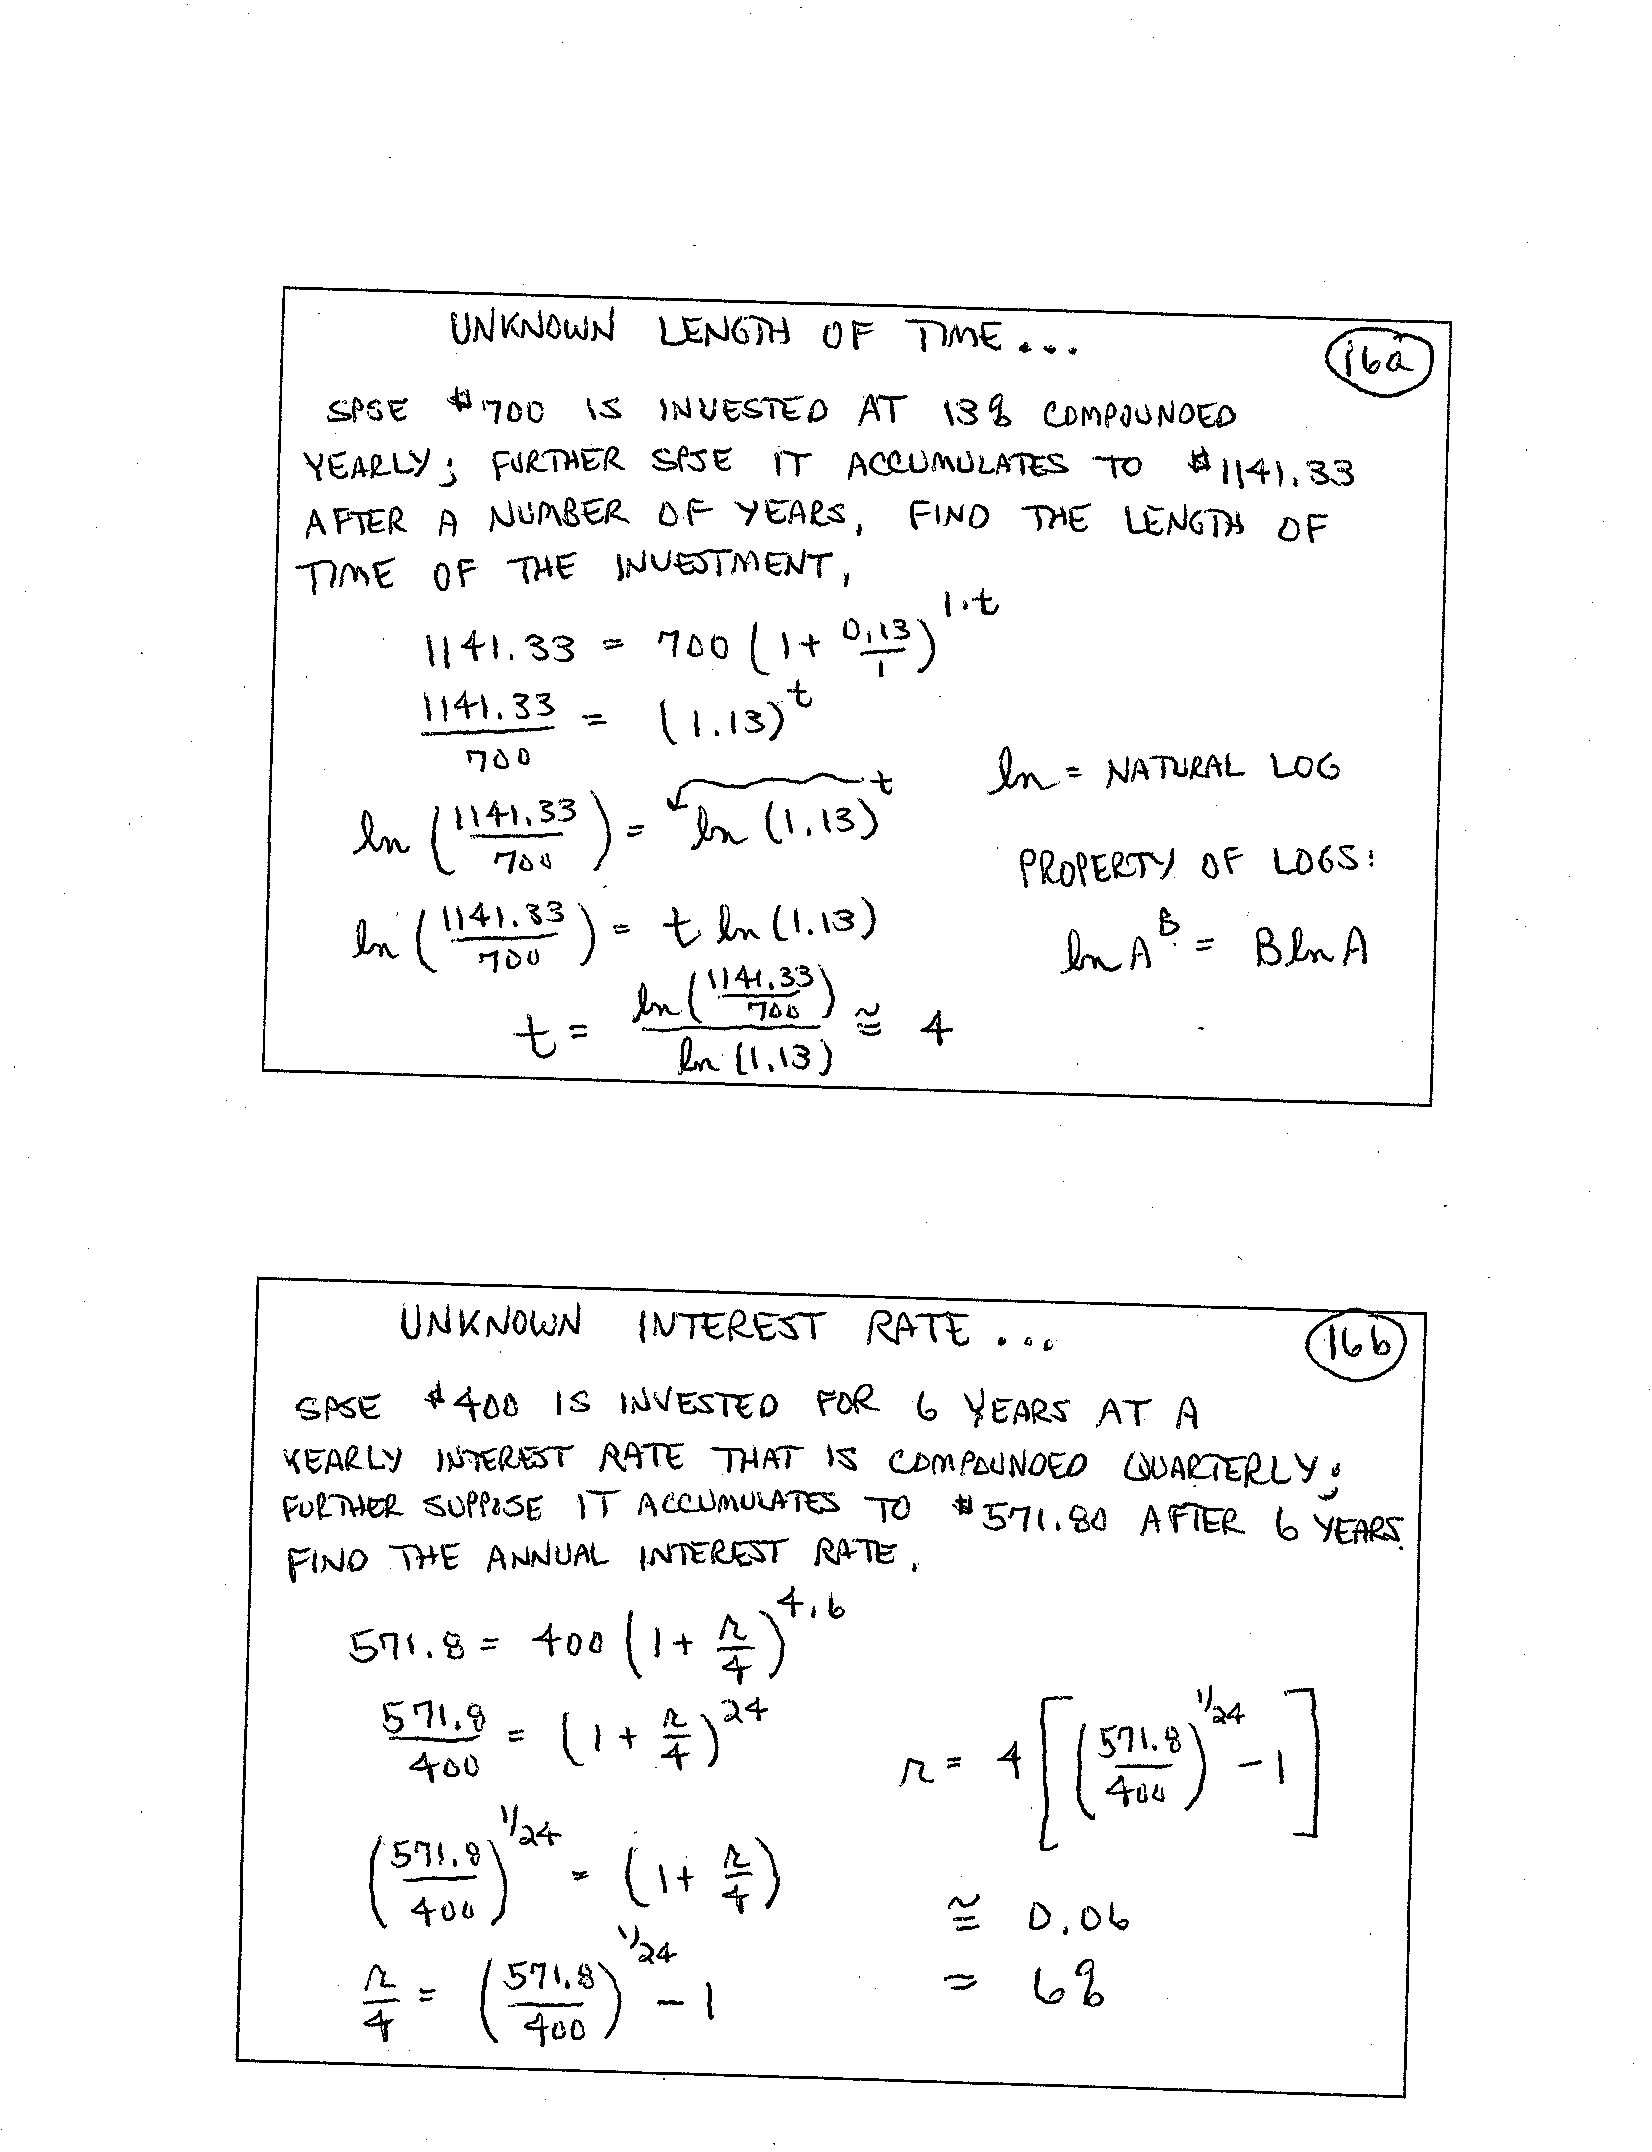 UNKNOWN LENGTH OF TIME...
16a
SPSE $700 IS INVESTED AT 13% COMPOUNDED
YEARLY; FURTHER SPSE IT ACCUMULATES TO $1141.33
AFTER A NUMBER OF YEARS, FIND THE LENGTH OF
TIME OF THE INVESTMENT.
1141.33 = 700 (1 + 0.13/1)^1·t
1141.33/700 = (1.13)^t
ln = NATURAL LOG
ln (1141.33/700) = ln (1.13)^t
PROPERTY OF LOGS:
ln (1141.33/700) = t ln (1.13)
ln A^B = B ln A
t = ln(1141.33/700)/ln (1.13) ≅ 4
UNKNOWN INTEREST RATE...
16b
SPSE $400 IS INVESTED FOR 6 YEARS AT A
YEARLY INTEREST RATE THAT IS COMPOUNDED QUARTERLY;
FURTHER SUPPOSE IT ACCUMULATES TO $571.80 AFTER 6 YEARS.
FIND THE ANNUAL INTEREST RATE.
571.8 = 400 (1 + r/4)^4·6
571.8/400 = (1 + r/4)^24
(571.8/400)^1/24 = (1 + r/4)
r/4 = (571.8/400)^1/24 - 1
r = 4 [(571.8/400)^1/24 - 1]
≅ 0.06
= 6%